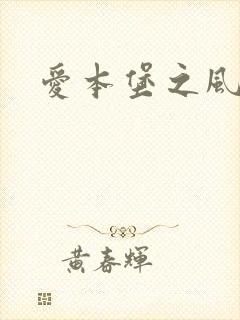 愛本堡之風
黃春輝